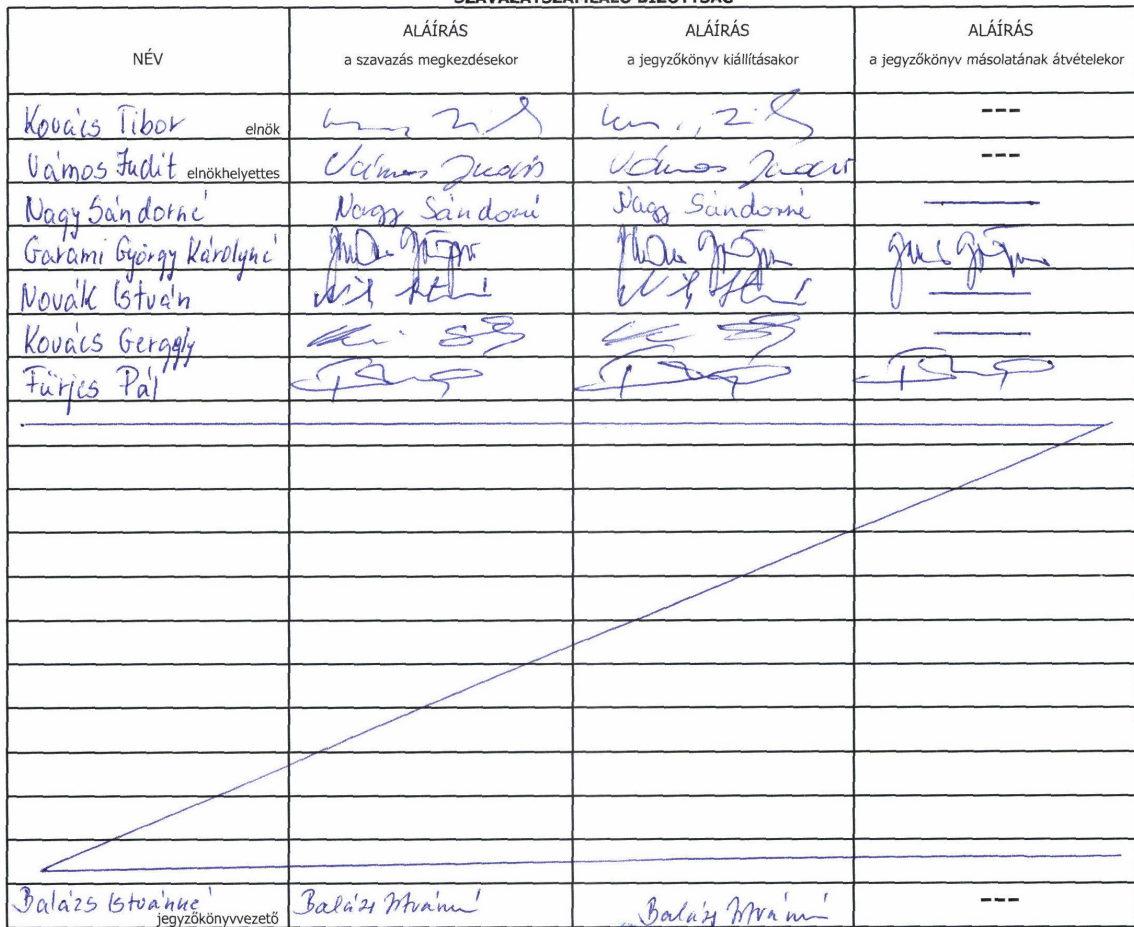 SZAVAZATSZÁMLÁLÓ BIZOTTSÁG
NÉV ALÁÍRÁS ALÁÍRÁS ALÁÍRÁS
a szavazás megkezdésekor a jegyzőkönyv kiállításakor a jegyzőkönyv másolatának átvételekor
Kovács Tibor elnök ---
Vámos Judit elnökhelyettes Vámos Judit Vámos Judit ---
Nagy Sándorné Nagy Sándorné Nagy Sándorné
Garami György Károlyné
Novák István
Kovács Gergely
Fürjes Pál
Balázs Istvánné jegyzőkönyvvezető Balázs Istvánné Balázs Istvánné ---